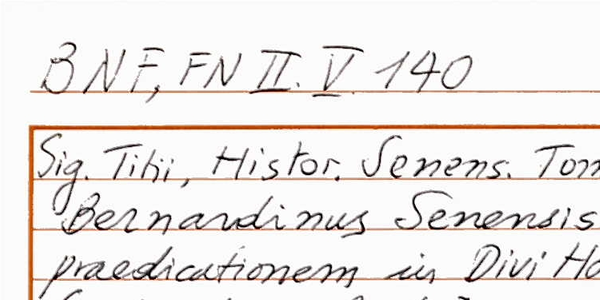 BNF, FN II. V 140
Sig. Titii, Histor. Senens. Tom
Bernardinus Senensis
praedicationem in Divi